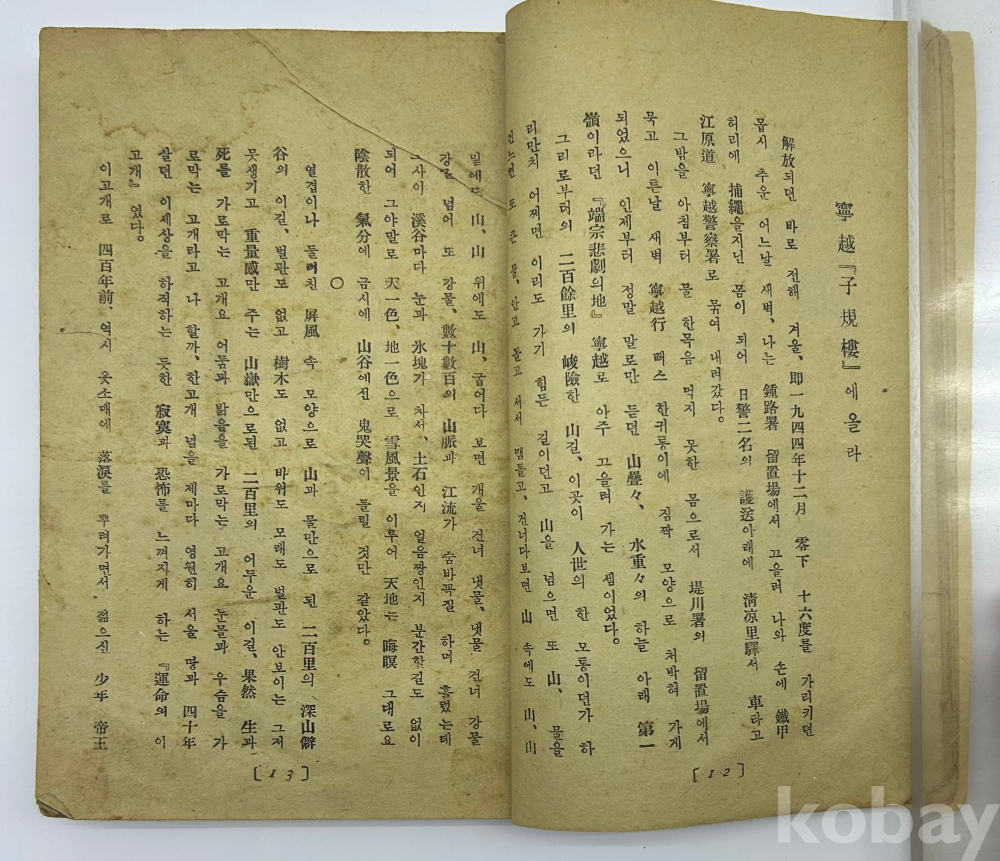 寧越『子規樓』에올라
解放되던 바로 전해 겨울, 即 一九四四年十二月 零下 十六度를 가리키던
몹시 추운 어느날 새벽, 나는 鍾路署 留置場에서 끄을려 나와 손에 鐵甲
허리에 捕繩을지닌 몸이 되어 日警二名의 護送아래에 淸凉里驛서 車타고
江原道 寧越警察署로 묶여 내려갔다.
그밤을 아침부터 물 한목음 먹지 못한 몸으로서 堤川署의 留置場에서
묵고 이튼날 새벽 寧越行 뻐스 한귀퉁이에 짐짝 모양으로 처박혀 가게
되었으니 인제부터 정말 말로만 듣던 山疊々、 水重々의 하늘 아래 第一
嶺이라던 『端宗悲劇의地』 寧越로 아주 끄을려 가는 셈이었다。
그리로부터의 二百餘里의 峻險한 山길、이곳이 人世의 한 모퉁이던가 하
리만치 어쩌면 이리도 가기 힘든 길이던고 山을 넘으면 또 山、물을
건느면 또 큰 물、안고 돌고 서서 맴돌고、건너다보면 山 속에도 山、山
[12]
밑에도 山、山 위에도 山、굽어다 보면 개울 건너 냇물、냇물 건너 강물
강물 넘어 또 강물、數十數百의 山脈과 江流가 숨바꼭질 하며 흘렀는데
그사이 溪谷마다 눈과 氷塊가 차서、土石인지 얼음짱인지 분간할길도 없이
되어 그야말로 天一色、地一色으로 雪風景을 이루어 天地는 晦暝 그대로요
陰散한 氣分에 금시에 山谷에선 鬼哭聲이 들릴 것만 같았다。
○
열겹이나 둘러친 屛風 속 모양으로 山과 물만으로 된 二百里의 深山僻
谷의 이길、벌판도 없고 樹木도 없고 바위도 모래도 벌판도 안보이는 그저
못생기고 重量感만 주는 山嶽만으로된 二百里의 어두운 이길、果然 生과
死를 가로막는 고개요 어둠과 밝음을 가로막는 고개요 눈물과 우슴을 가
로막는 고개라고 나 할까、한고개 넘을 제마다 영원히 서울 땅과 四十年
살던 이세상을 하직하는 듯한 寂寞과 恐怖를 느껴지게 하는 『運命의 이
고개』였다。
이고개로 四百年前、역시 옷소매에 落淚를 뿌려가면서 젊으신 少年 帝王
[13]
kobay